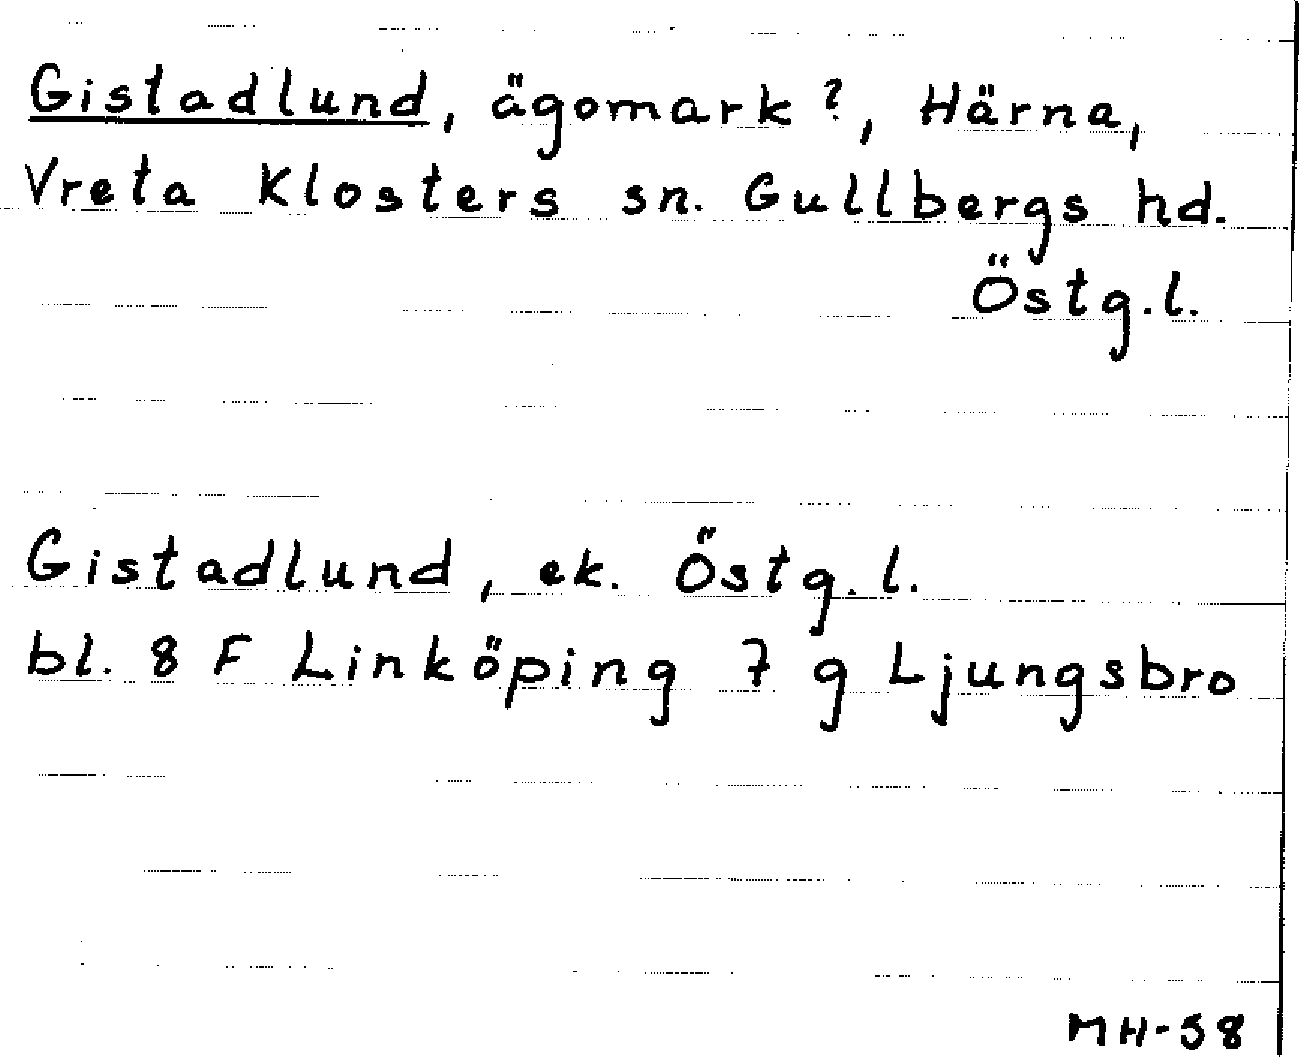 Gistadlund, ägomark?, Härna,
Vreta Klosters sn. Gullbergs hd.
Östg.l.
Gistadlund, ek. Östg.l.
bl. 8 F Linköping 7 g Ljungsbro
MH-58